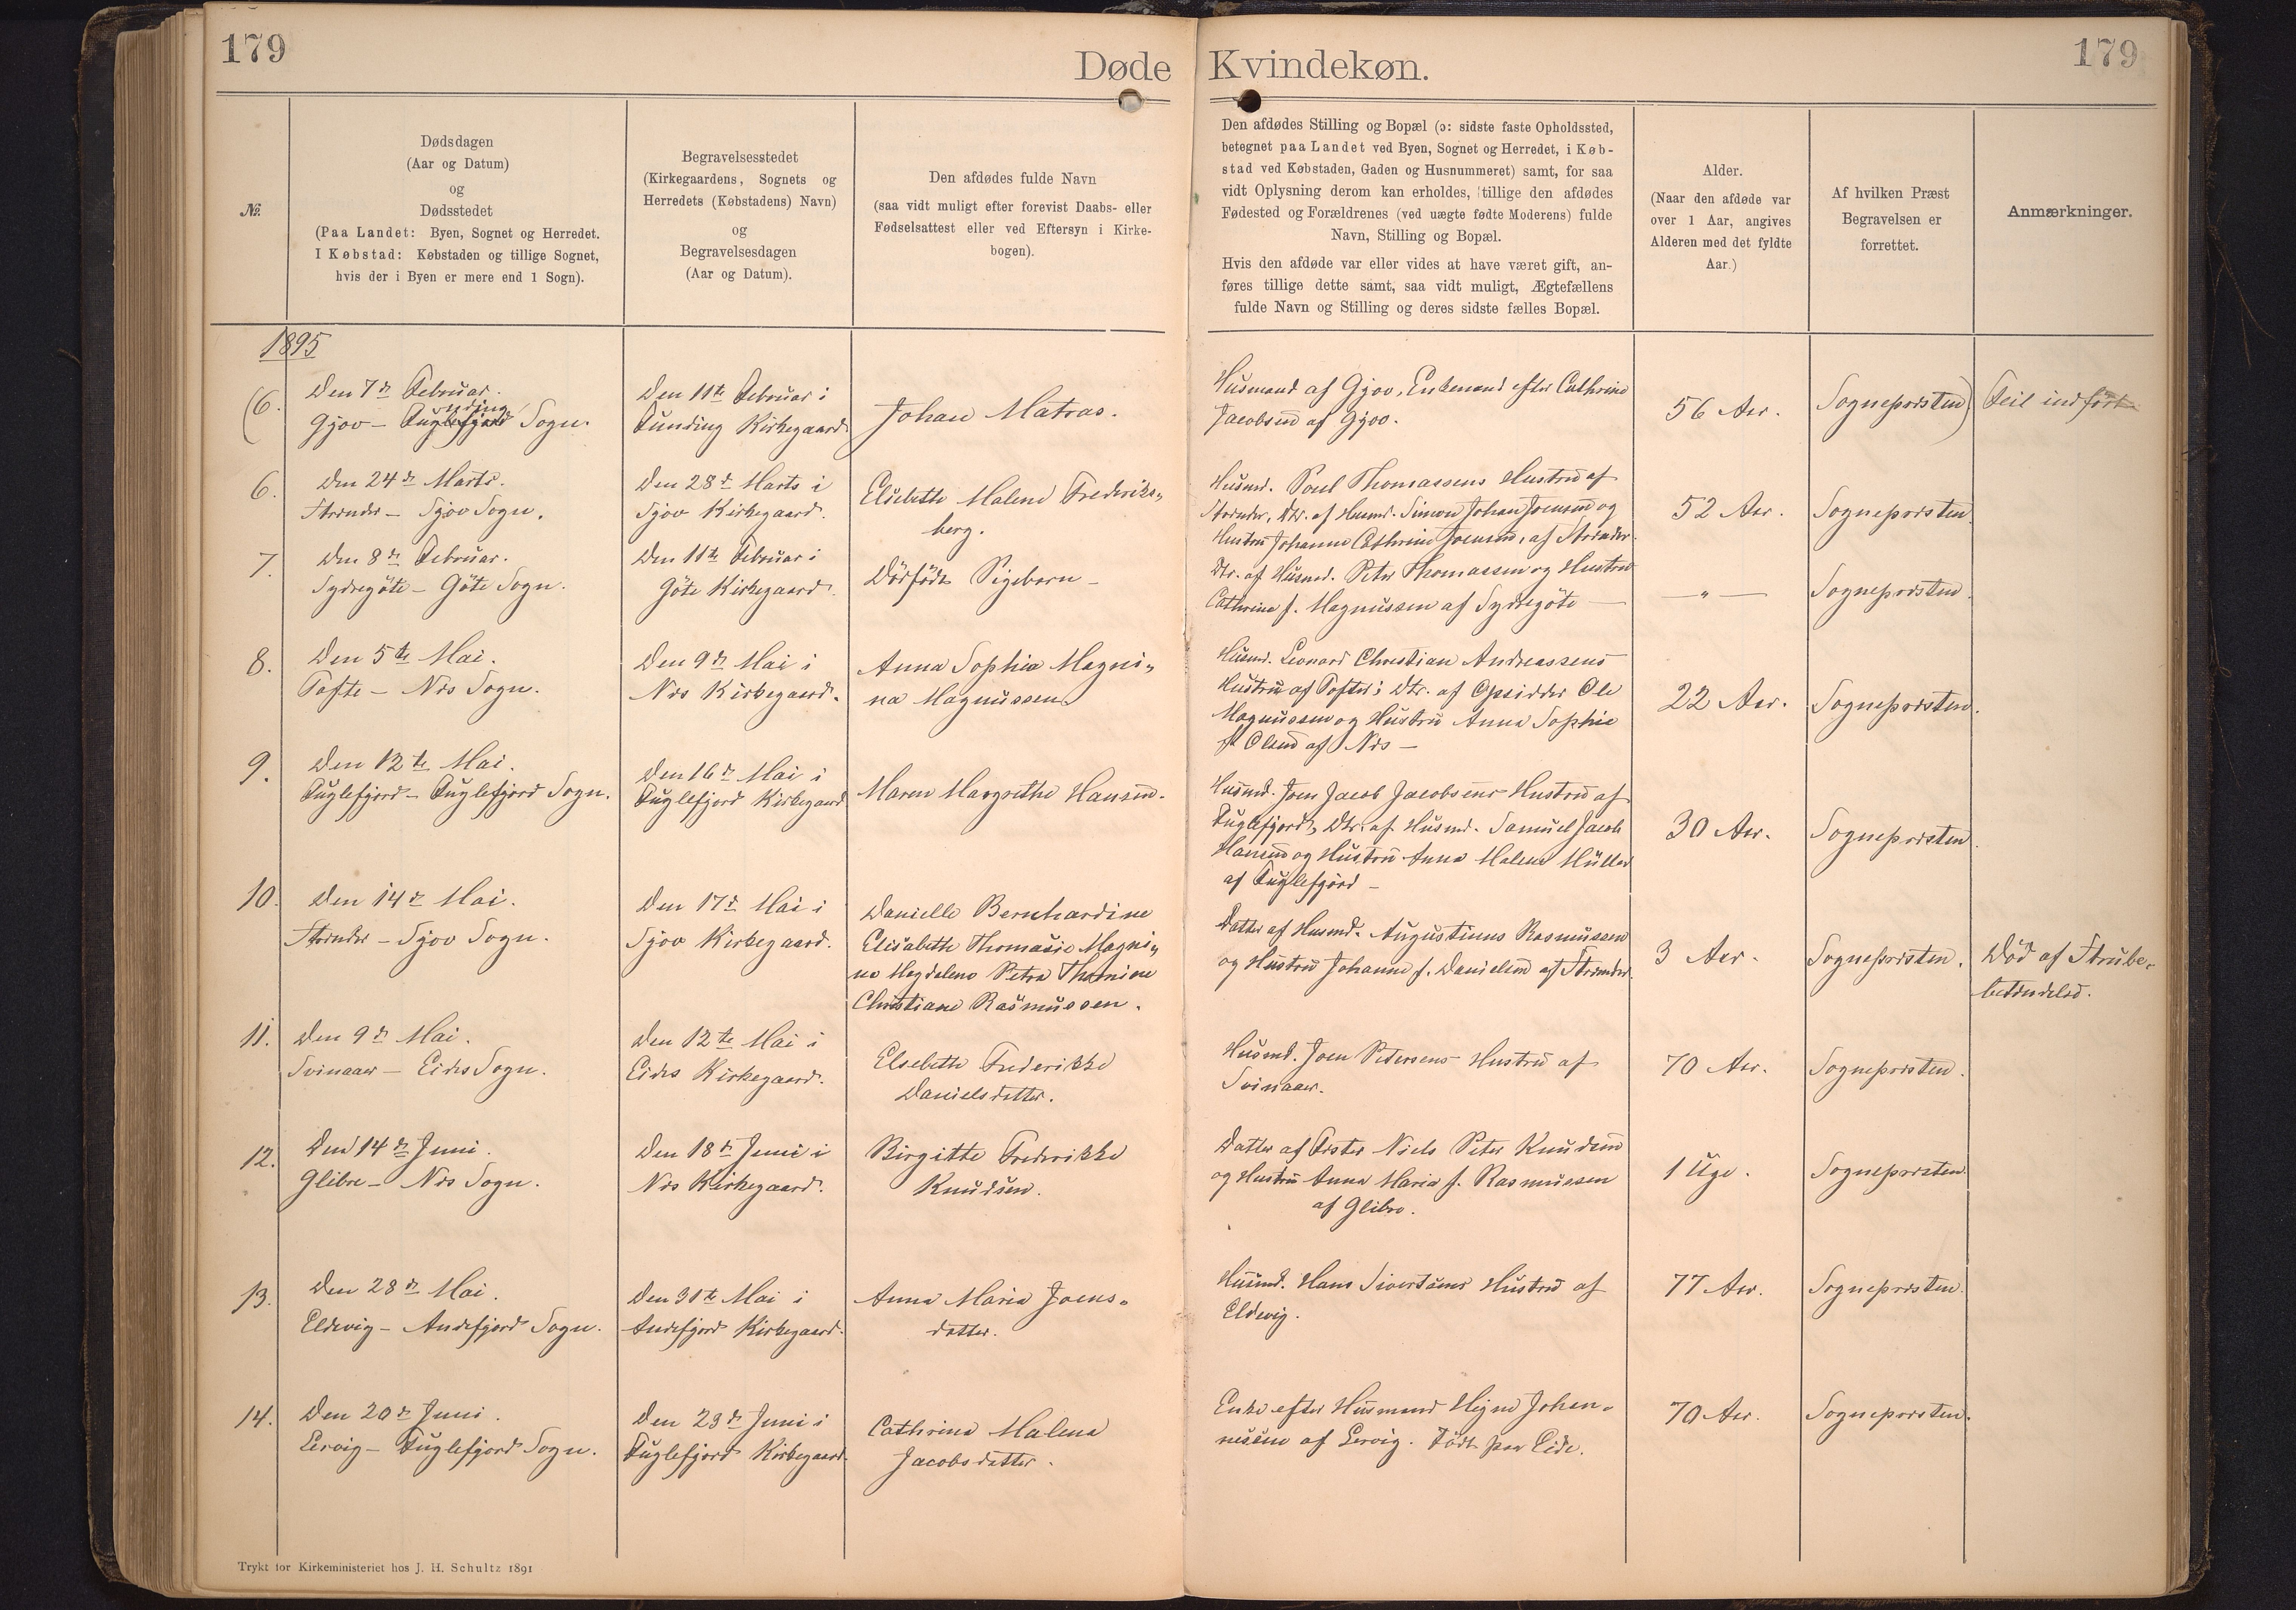 179
Døde
Kvindekøn.
179
№.
Dødsdagen
(Aar og Datum)
og
Dødsstedet
(Paa Landet: Byen, Sognet og Herredet.
I Købstad: Købstaden og tillige Sognet,
hvis der i Byen er mere end 1 Sogn).
Begravelsesstedet
(Kirkegaardens, Sognets og
Herredets (Købstadens) Navn)
og
Begravelsesdagen
(Aar og Datum).
Den afdødes fulde Navn
(saa vidt muligt efter forevist Daabs- eller
Fødselsattest eller ved Eftersyn i Kirke-
bogen).
Den afdødes Stilling og Bopæl (ɔ: sidste faste Opholdssted,
betegnet paa Landet ved Byen, Sognet og Herredet, i Køb-
stad ved Købstaden, Gaden og Husnummeret) samt, for saa
vidt Oplysning derom kan erholdes, tillige den afdødes
Fødested og Forældrenes (ved uægte fødte Moderens) fulde
Navn, Stilling og Bopæl.
Hvis den afdøde var eller vides at have været gift, an-
føres tillige dette samt, saa vidt muligt, Ægtefællens
fulde Navn og Stilling og deres sidste fælles Bopæl.
Alder.
(Naar den afdøde var
over 1 Aar, angives
Alderen med det fyldte
Aar.)
Af hvilken Præst
Begravelsen er
forrettet.
Anmærkninger.
1895
(6.
Den 7de Februar.
Gjov - Fuglefjord Sogn.
unding
Den 11te Februar i
Funding Kirkegaard
Johan Matras.
Husmand af Gjov, Enkemand efter Cathrine
Jacobsen af Gjov.
56 Aar.
Sognepræsten)
Feil indført
6.
Den 24de Marts.
Strænder - Sjov Sogn.
Den 28de Marts i
Sjov Kirkegaard.
Elsebeth Malene Frederiks-
berg.
Husmd. Poul Thomassens Hustru af
Strænder, Dtr. af Husmd. Simon Johan Joensen og
Hustru Johanne Cathrine Joensen, af Strænder.
52 Aar.
Sognepræsten.
7.
Den 8de Februar.
Sydregöte - Göte Sogn.
Den 11te Februar i
Göte Kirkegaard.
Dödfödt Pigebarn -
Dtr. af Husmd. Peter Thomassen og Hustru
Cathrine f. Magnussen af Sydregöte -
— " —
Sognepræsten.
8.
Den 5te Mai.
Tofte - Næs Sogn.
Den 9de Mai i
Næs Kirkegaard.
Anna Sophia Magni-
na Magnussen
Husmd. Leonard Christian Andreassens
Hustru af Tofter; Dtr. af Opsidder Ole
Magnussen og Hustru Anna Sophie
f. Olsen af Næs -
22 Aar.
Sognepræsten.
9.
Den 12te Mai.
Fuglefjord - Fuglefjord Sogn.
Den 16de Mai i
Fuglefjord Kirkegaard
Maren Margrethe Hansen.
Husmd. Joen Jacob Jacobsens Hustru af
Fuglefjord, Dtr. af Husmd. Samuel Jacob
Hansen og Hustru Anna Malene Müller
af Fuglefjord -
30 Aar.
Sognepræsten.
10.
Den 14de Mai.
Strænder - Sjov Sogn.
Den 17de Mai i
Sjov Kirkegaard.
Danielle Bernhardine
Elisabeth Thomasie Magni-
na Magdalena Petra Thomine
Christiane Rasmussen.
Datter af Husmd. Augustinus Rasmussen
og Hustru Johanne f. Danielsen af Strænder.
3 Aar.
Sognepræsten.
Død af Strube-
betændelse.
11.
Den 9de Mai.
Svinaaer - Eides Sogn.
Den 12te Mai i
Eides Kirkegaard.
Elsebeth Frederikke
Danielsdatter.
Husmd. Joen Petersens Hustru af
Svinaaer.
70 Aar.
Sognepræsten.
12.
Den 14de Juni.
Glibre - Næs Sogn.
Den 18de Juni i
Næs Kirkegaard.
Birgitte Frederikke
Knudsen.
Datter af Fæster Niels Peter Knudsen
og Hustru Anna Maria f. Rasmussen
af Glibre.
1 Uge.
Sognepræsten.
13.
Den 28de Mai.
Eldevig - Andefjord Sogn.
Den 31te Mai i
Andefjord Kirkegaard.
Anna Maria Joens-
datter.
Husmd. Hans Sivertsens Hustru af
Eldevig.
77 Aar.
Sognepræsten.
14.
Den 20de Juni.
Lervig - Fuglefjord Sogn.
Den 23de Juni i
Fuglefjord Kirkegaard.
Cathrine Malena
Jacobsdatter.
Enke efter Husmand Hejne Johan-
nesen af Lervig. Født paa Eide.
70 Aar.
Sognepræsten.
Trykt for Kirkeministeriet hos J. H. Schultz 1891